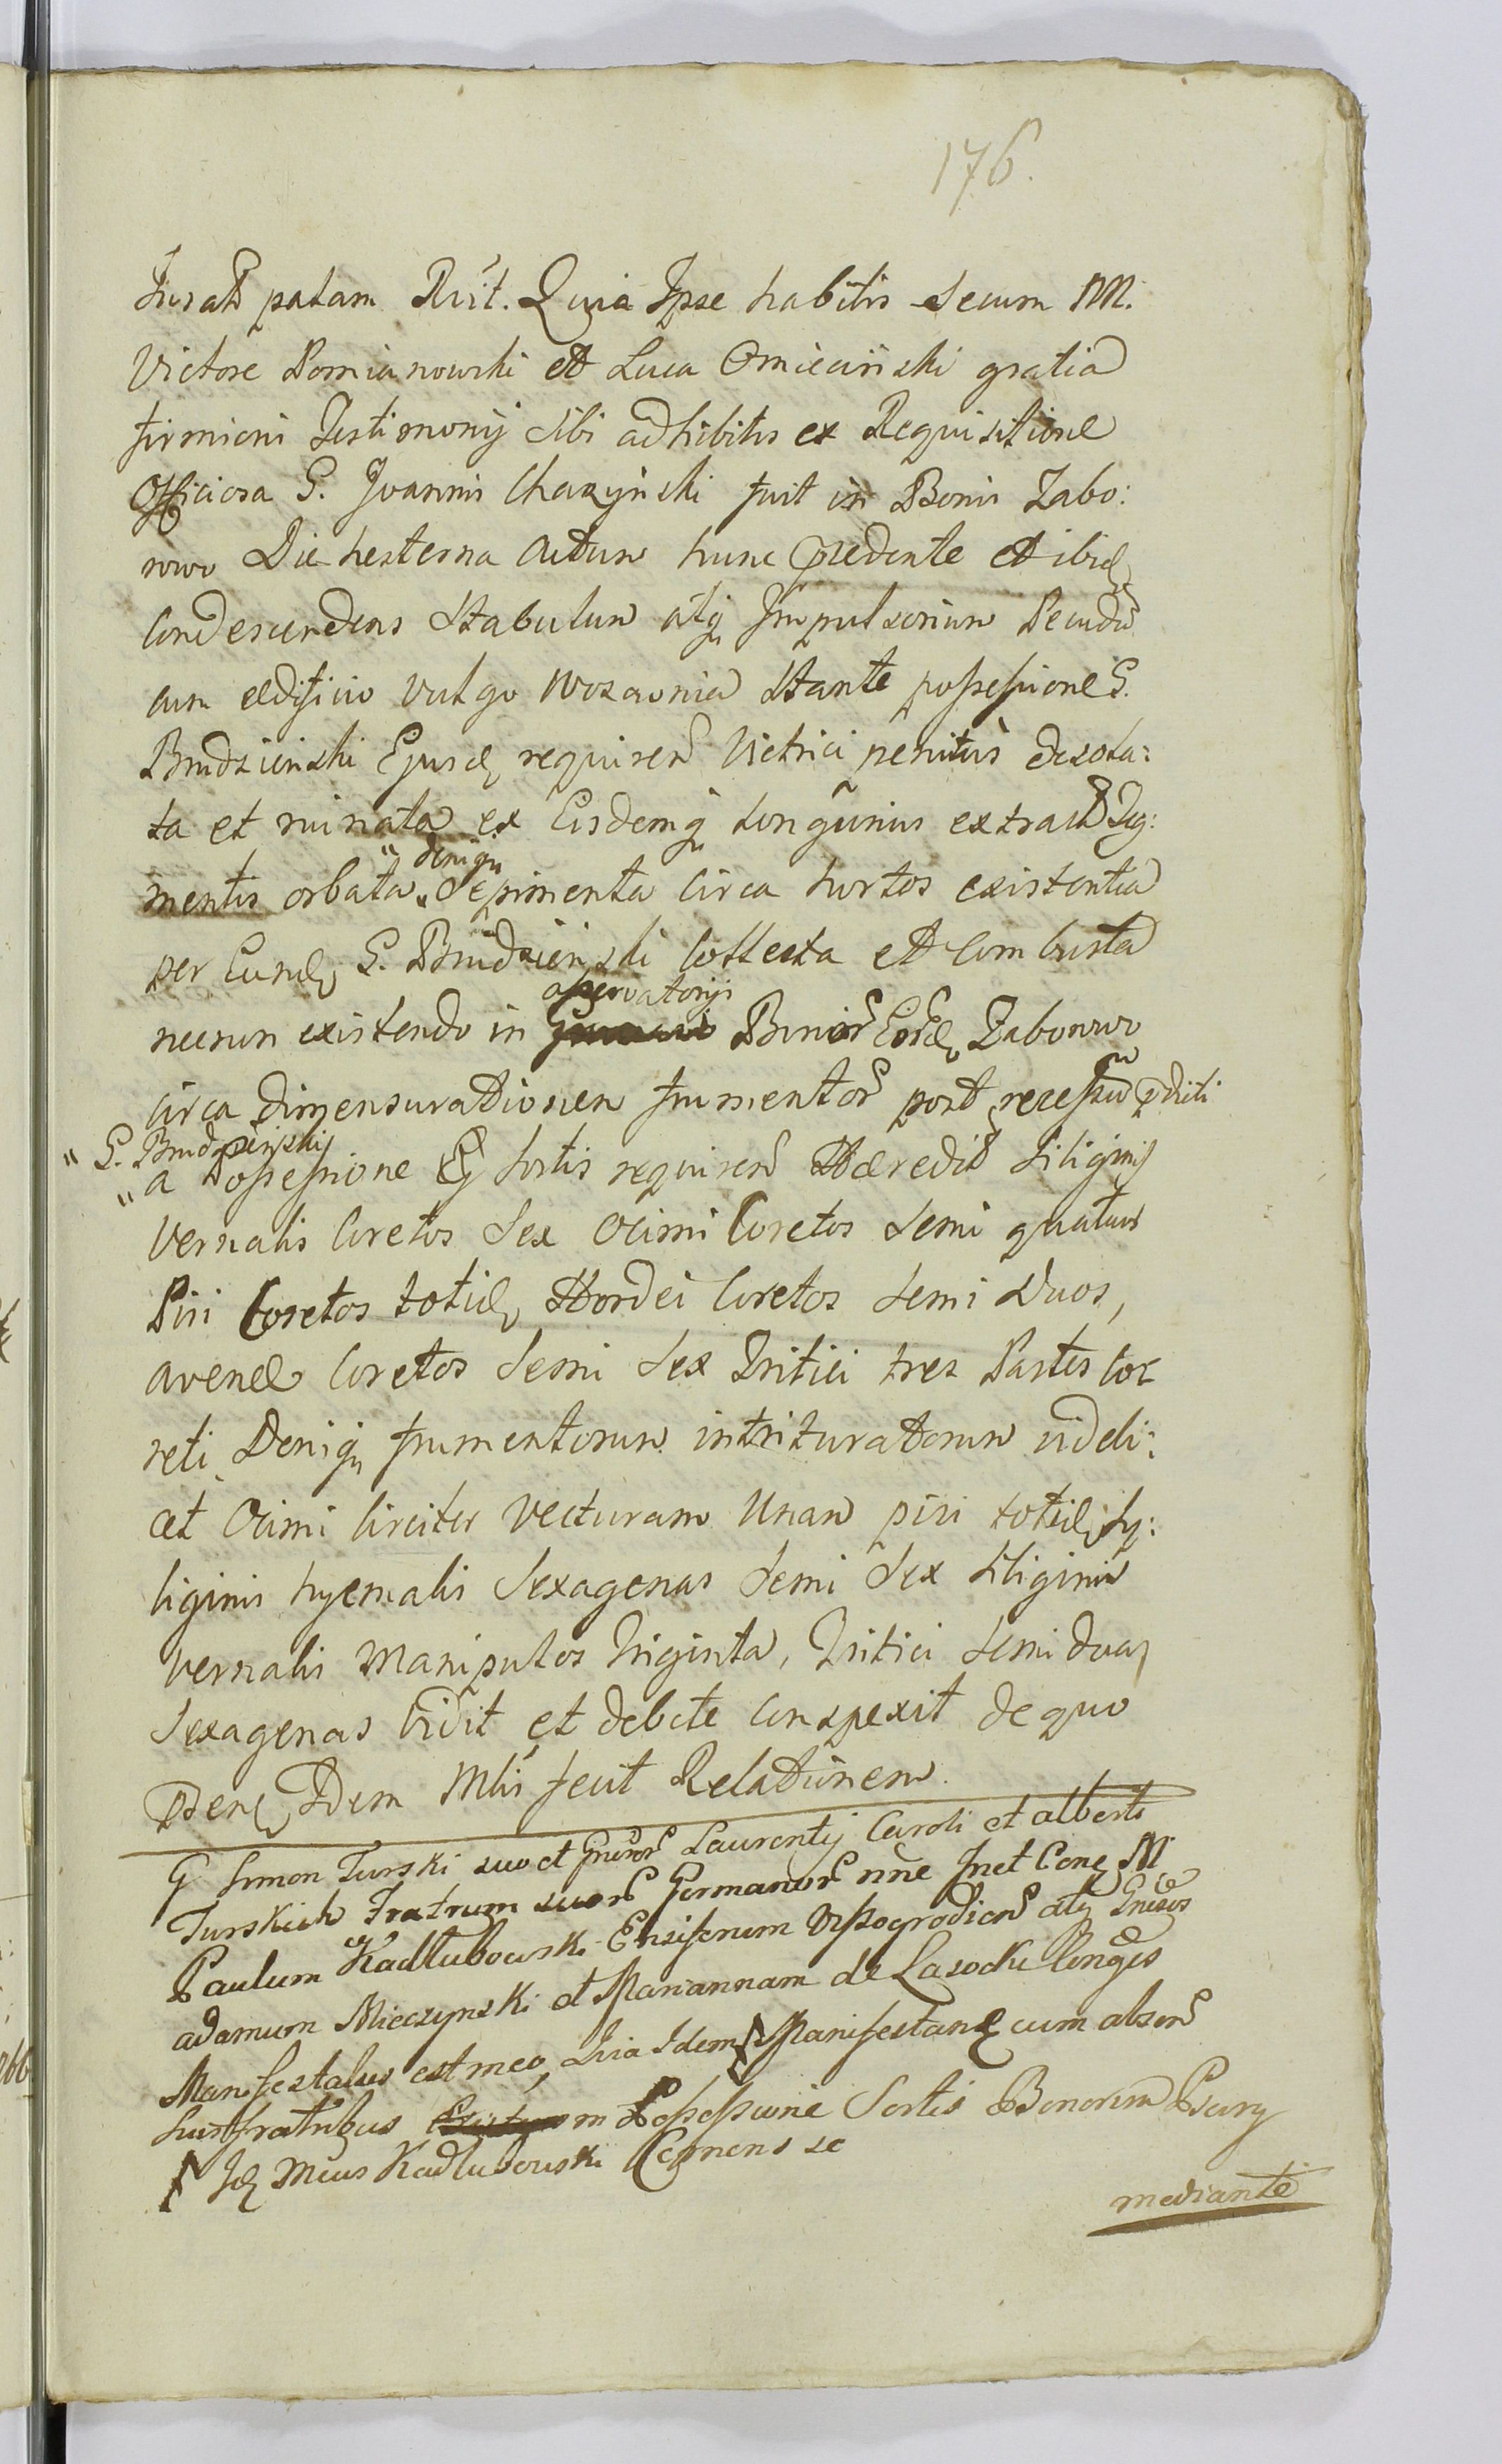 176.
Jurato palam Rvit. Quia Ipse habitis Secum NN.
Victore Pomianowski et Luca Omieciński gratia
firmioris Testimonij Sibi adhibitis ex Requisitione
Officiosa G. Joannis Charzyński fuit in Bonis Zabo:
rowo Die hesterna Actum hunc præcedente et ibid
Condescendens Stabulum atq Impulsorium Pecudu
cum ædificio vulgo wozownia Stante possessione G.
Brudzieński Ejusd requiren Victrici penitus desola:
ta et ruinata ex Eisdemq extract Tig:
mentis orbata deniq Sepimenta Circa hortos existentia
per Eund G. Brudzieński Collecta et Combusta
necnon existendo in aservatorijs Bonor Eord Zaborowo
Circa dimensurationem frumentor post recessu pditi
" G. Brudzieński
" a Possessione Ej Sortis requiren Hæredit Siliginis
vernalis Coretos Sex Ocimi Coretos Semi quatuor
Pisi Coretos totid Hordei Coretos Semi Duos,
avenæ Coretos Semi Sex Tritici tres Partes Cor
reti Deniq frumentorum intrituratorum videli:
cet Ocimi Circiter Vecturam Unam pisi totid Sy:
liginis hyemalis Sexagenas Semi Sex Siliginis
vernalis Manipulos Triginta, Tritici Semi duas
Sexagenas Vidit et debite Conspexit de quo
Idem Mlis fecit Relationem.
G Simon Turski suo et Gneror Laurentij Caroli et alberti
Turskich Fratrum suor Germanor nne Inet Cong M
Paulum Kadłubowski Ensiferum Wyszogrodien atq Gnesos
adamum Mieczynski et Mariannam de Lasockie Conges
Manifestatus est meo, Quia Idem Manifestans cum absen
suis fratribus in Possessione Sortis Bonorum Psary
Id Mcus Kadłubowski Cernens se
mediante